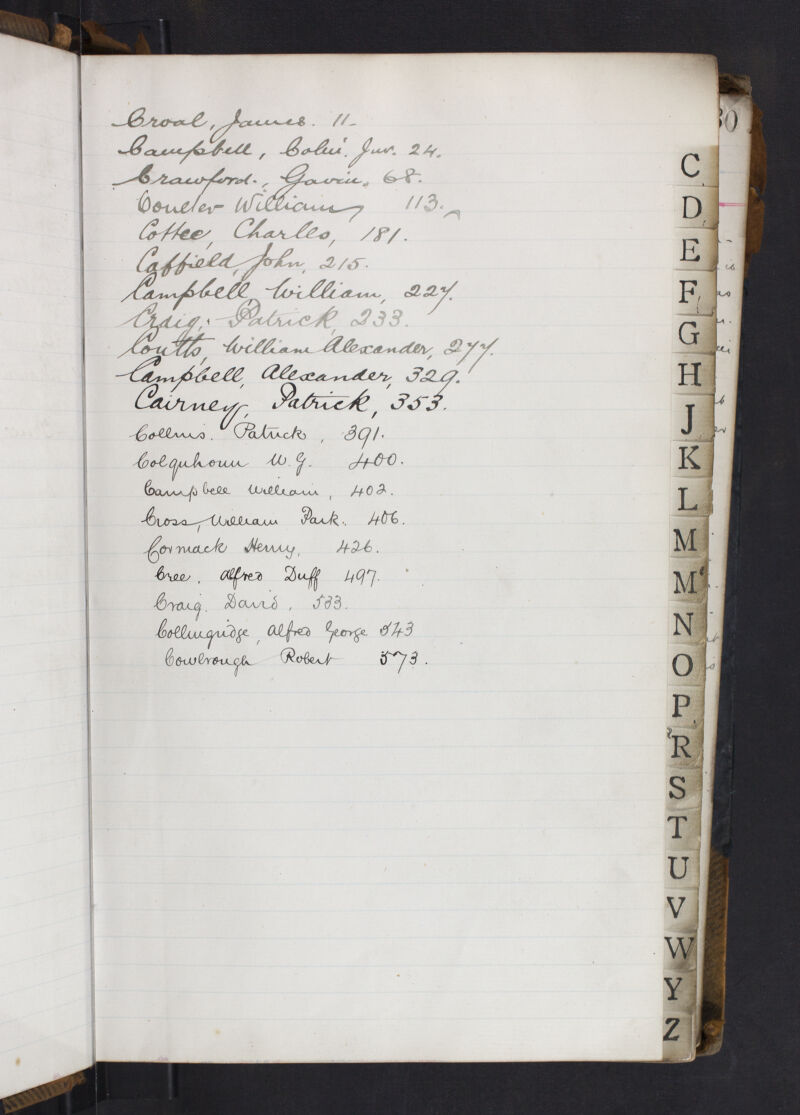 Croal, James. 11.
Campbell, Colin. Jnr. 24.
Crawford, Gavin. 68.
Coulter William 113.
Cottee, Charles, 181.
Caffield, John, 215.
Campbell, William, 227.
Craig, Patrick, 233.
Coutts, William Alexander, 277.
Campbell, Alexander, 329.
Cairney, Patrick, 353.
Collins. Patrick, 391.
Colquhoun W.G. 400.
Campbell William, 402.
Cross, William Park. 406.
Cormack Henry, 426.
Cree, Alfred Duff 497.
Craig. David, 533.
Collingridge, Alfred George 543
Cowbrough Robert 573.
30
C
D
E
F
G
H
J
K
L
M
Mc
N
O
P
R
S
T
U
V
W
Y
Z